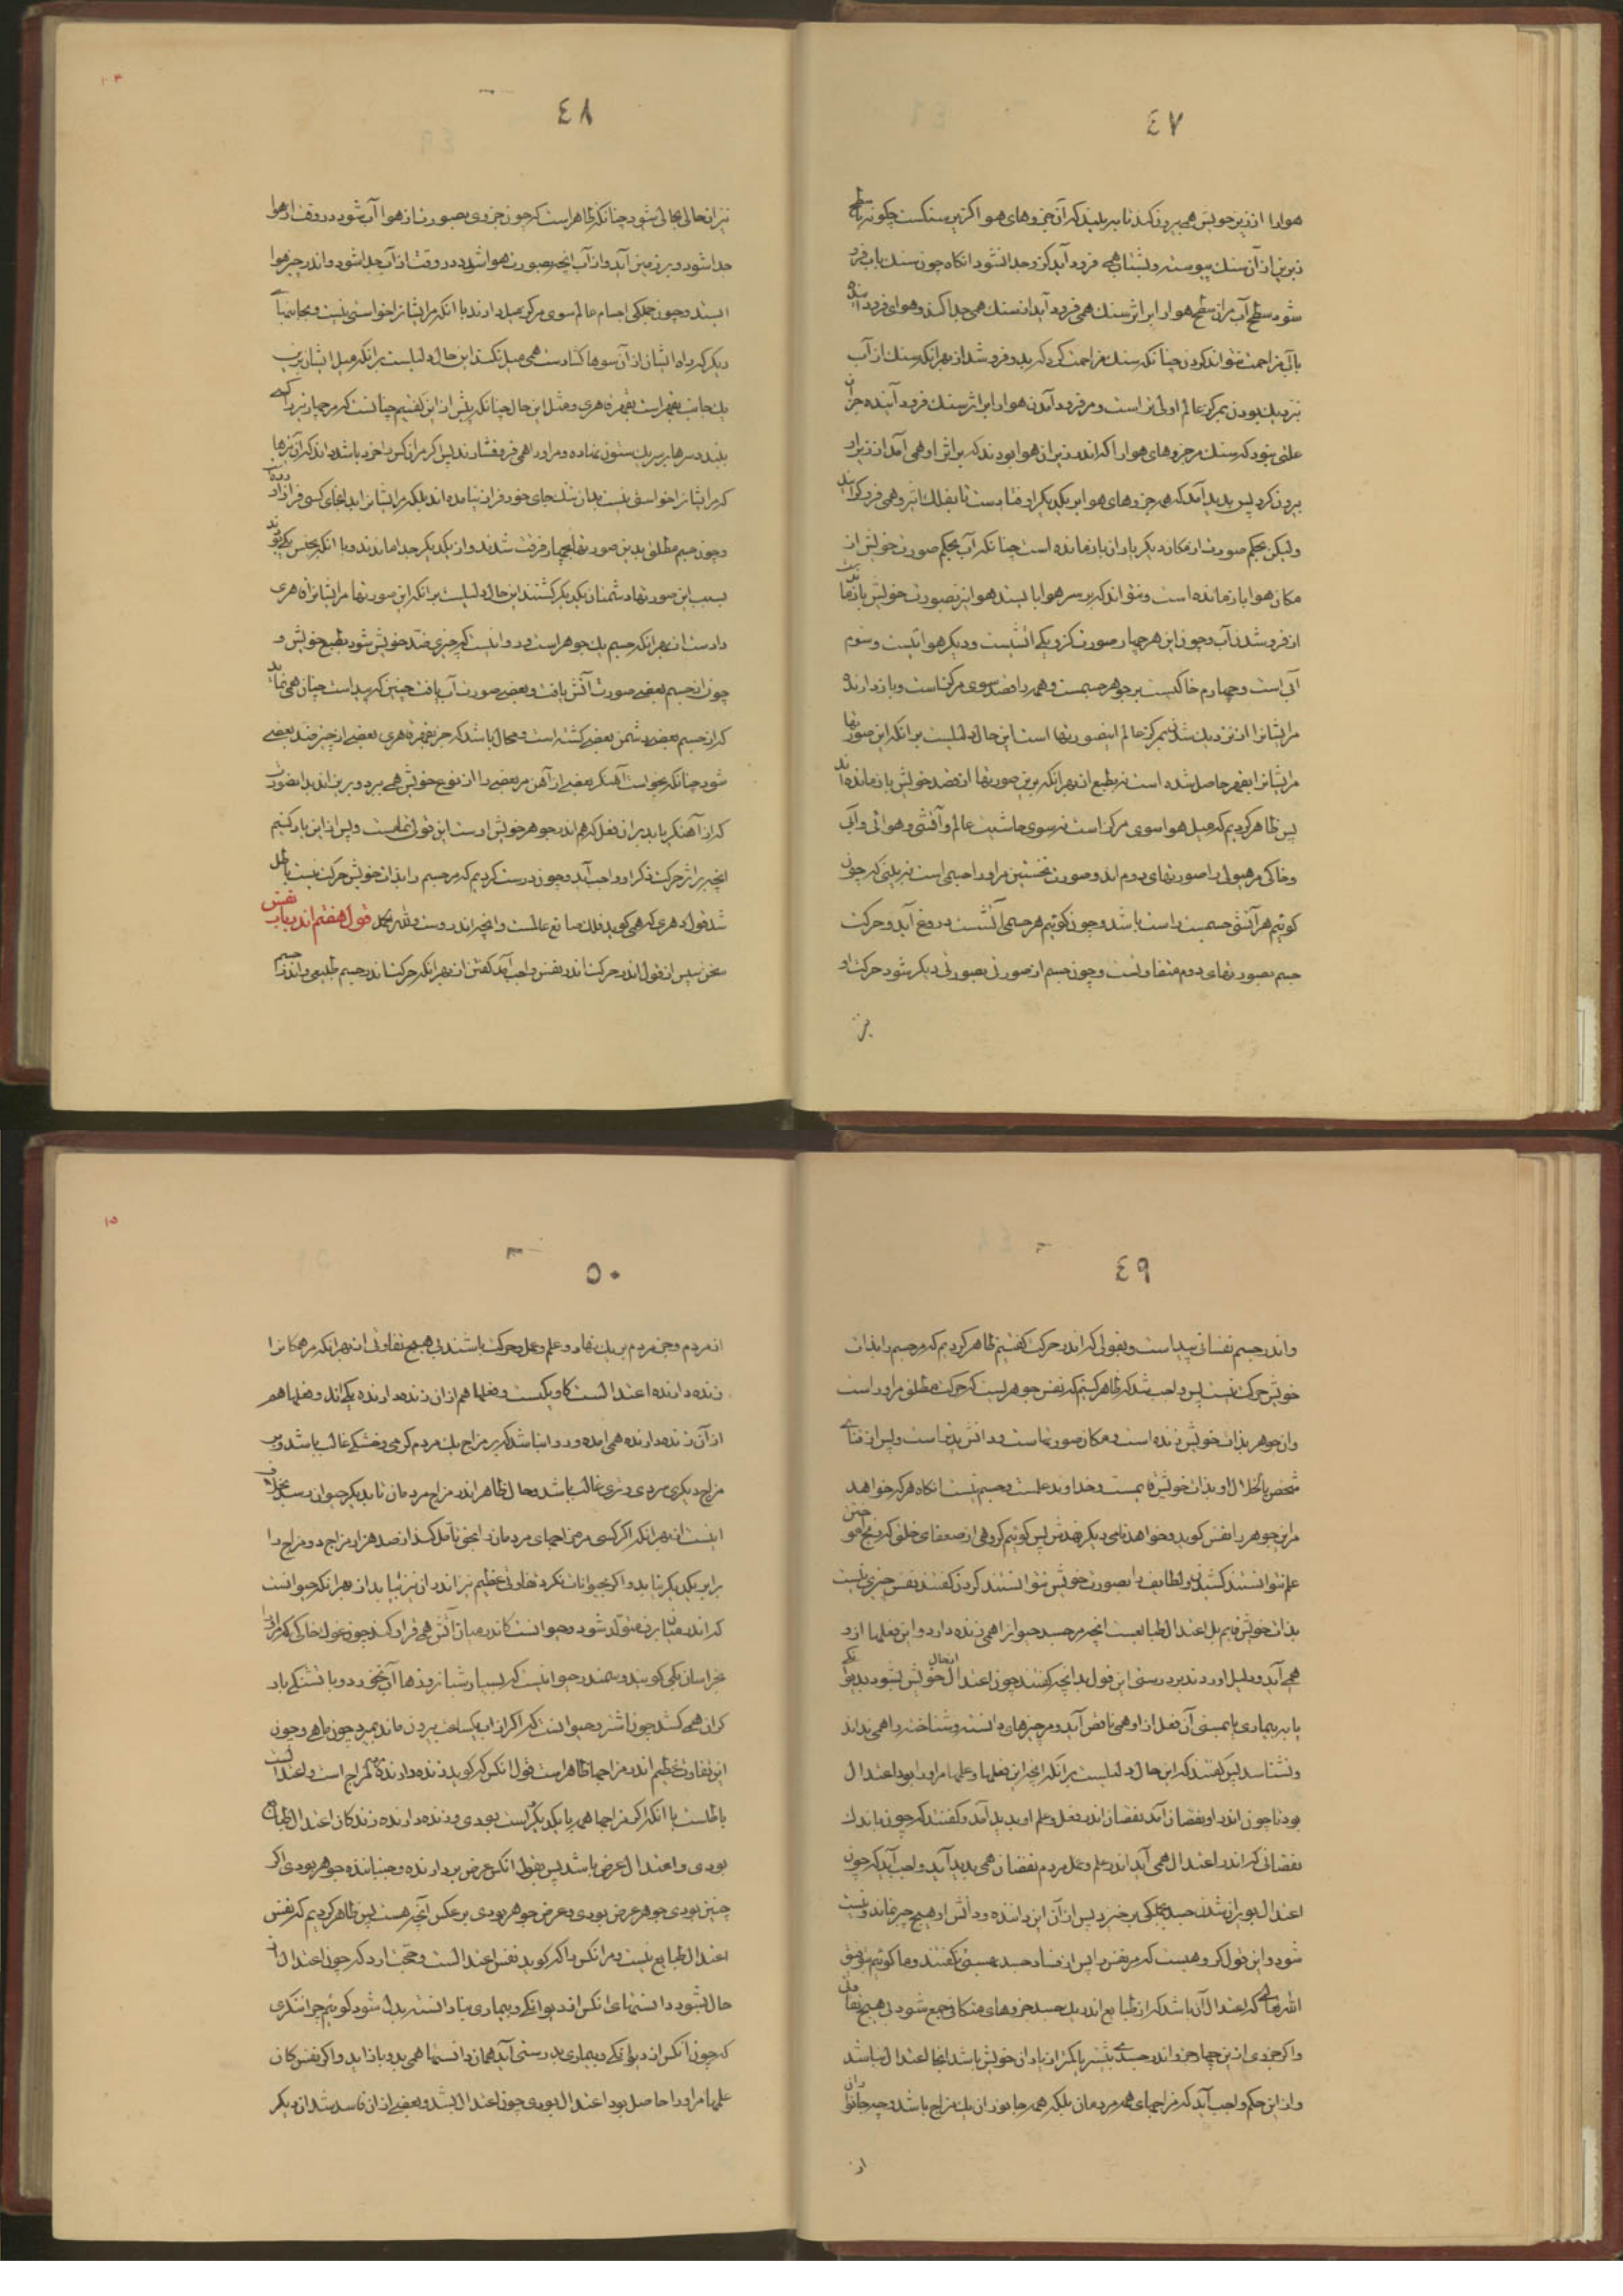 ٤٧
هوارا از زیر خویش همی بیرون کند تا بر بلیند که آن جزوهای هوا کزین سنگست چگونه با سطح
زیرین از آن سنگ پیوسته و بشتاب همی فرود آید کزو جدا نشود آنگاه چون سنگ بآب فرو
شود سطح آب مران سطح هوا را بر اثر سنگ همی فرود آید از سنگ همی جدا کند و هوای فرود آینده
با آب مزاحمت نتواند کردن چنانکه سنگ مزاحمت کرد که بدو فرو شد از بهر آنکه سنگ از آب
نزدیک بودن بمرکز عالم اولی تر است و مر فرود آمدن هوا را بر اثر سنگ فرود آینده جز آن
علتی نبود که سنگ مر جزوهای هوا را که اندر زیر آن هوا بودند که بر اثر او همی آمد از زیر او
بیرون کرد پس پدید آمد که همه جزوهای هوا بر یکدیگر اوفتاده است تا بفلک اثیر و همی فرو گراید
ولیکن بحکم صورت از مکان دیگر یاران باز مانده است چنانکه آب بحکم صورت خویش از
مکان هوا باز مانده است و نتواند که بر سر هوا بایستد هوا نیز بصورت خویش باز مانده است
از فرو شدن بآب و چون این هر چهار صورت کزو یکی آتشیست و دیگر هوائیست و سوم
آبی است و چهارم خاکیست بر جوهر جسمست و همه را قصد سوی مرکز است و باز دارنده
مر ایشان را از نزدیک شدن بمرکز عالم این صورتها است این حال دلیلست بر آنکه این صورتها
مر ایشان را بقهر حاصل شده است نه بطبع از بهر آنکه برین صورتها از قصد خویش باز مانده اند
پس ظاهر کردیم که میل هوا سوی مرکز است نه سوی حاشیت عالم و آتشی و هوائی و آبی
و خاکی مر هیولی را صورتهای دوم اند و صورت نخستین مر او را جسمی است نه بینی که چون
گوئیم هر آتشی جسمیست راست باشد و چون گوئیم هر جسمی آتشست دروغ آید و حرکت
جسم بصورتهای دوم متفاوتست و چون جسم از صورتی بصورتی دیگر شود حرکت او
نیز
٤٨
نیز از حالی بحالی شود چنانکه ظاهر است که چون جزوی بصورت از هوا آب شود در وقت از هوا
جدا شود و بر زمین آید و از آب آنچه بصورت هوا شود در وقت از آب جدا شود و اندر حیز هوا
ایستد و چون جملگی اجسام عالم سوی مرکز میل دارند با آنکه مر ایشان را خواستی نیست و بجانبهای
دیگر که راه ایشان از آن سوها گشاده ست همی میل نکنند این حال دلیلست بر آنکه میل ایشان برین
یک جانب بقهر است بقهر قاهری و مثل این حال چنانکه پیش ازین گفتیم چنانست که مر چهار تیر را کسی
بلبند و سرها بر سر یک ستون نهاده و مر او را همی فرو فشارند پس اگر مر آن کس را خرد باشد بداند که آن تیرها
که مر ایشان را خواستی نیست بدان تنگ جای خود فراز نیامده اند بلکه مر ایشان را بدانجای کسی فراز آورده
و چون جسم مطلق بدین صورتها بچهار فرقت شدند و از یکدیگر جدا ماندند و با آنکه بجنس یکی بودند
بسبب این صورتها دشمنان یکدیگر گشتند این حال دلیلست بر آنکه این صورتها مر ایشان را قاهری
داده ست از بهر آنکه جسم یک جوهر است و روا نیست که چیزی ضد خویش شود بطبع خویش و
چون از جسم بعضی صورت آتش یافت و بعضی صورت آب یافت چنین که پیداست چنان همی نماید
که از جسم بعضی دشمن بعضی گشته است و محال باشد که جز بقهر قاهری بعضی از چیز ضد بعضی
شود چنانکه بخواست آهنگر بعضی از آهن مر بعضی را از نوع خویش همی ببرد و بریزاند بدان صورت
که از آهنگر یابد بر آن فعل که هم اندر جوهر خویش اوست این قولی تمامست و پس از این یاد کنیم
آنچه بر اثر حرکت ذکر او واجب آید و چون درست کردیم که مر جسم را بذات خویش حرکت نیست باطل
شد قول دهری که همی گوید فلک صانع عالمست و آنچه اندروست ولله الحمد قول هفتم اندر باب نفس
سخن سپس از قول اندر حرکت اندر نفس واجب آید گفتن از بهر آنکه حرکت اندر جسم طبیعی و اندر جسم
٤٩
و اندر جسم نفسانی پیداست و بقولی که اندر حرکت گفتیم ظاهر کردیم که مر جسم را بذات
خویش حرکت نیست پس واجب شد که ظاهر کنیم که نفس جوهریست که حرکت مطلق مر او راست
و آن جوهر بذات خویش زنده است و مکان صورتهاست و دانش پذیر است و پس از فنای
شخص بانحلال او بذات خویش قایمست و خداوند علمست و جسم نیست آنگاه هر که خواهد
مر این جوهر را نفس گوید و خواهد نامی دیگر نهدش پس گوئیم گروهی از ضعفای خلق که رنج آموختن
علم نتوانستند کشیدن و لطایف را بصورت خویش نتوانستند کردن گفتند نفس چیزی نیست
بذات خویش قایم بل اعتدال طبایعست آنچه مر جسد حیوان را همی زنده دارد و این فعلها ازو
همی آید و دلیل آوردند بر درستی این قول بدانچه گفتند چون اعتدال از حال خویش بشود بدیوانگی
یا به بیماری یا بمستی آن فعل از او همی ناقص آید و مر چیزهای دانسته و شناخته را همی نداند
و نشناسد پس گفتند که این حال دلیلست بر آنکه آنچه این فعلها و علمها مر او را بود اعتدال
بود تا چون اندر او نقصان آمد نقصان اندر فعل و علم او پدید آمد و گفتند که چون باندک
نقصانی که اندر اعتدال همی آید اندر علم و عمل مردم نقصان همی پدید آید واجب آید که چون
اعتدال بویران شدن جسد بجملگی برخیزد پس از آن این داننده و دانش او هیچ چیز نماند و نیست
شود و این قول گروهیست که مر نفس را پس از فساد جسد هستی نگفتند و ما گوئیم بتوفیق
الله تعالی که اعتدال آن باشد که از طبایع اندر یک جسد جزوهای متکافی جمع شود بی هیچ تفاوتی
و اگر جزوی ازین چهار جزو اندر جسدی بیشتر یا کمتر از یاران خویش باشد آنجا اعتدال نباشد
و از این حکم واجب آید که مزاجهای همه مردمان بلکه همه جانوران یک مزاج باشد و چه جانوران
از
٥٠
از مردم و جز مردم بر یک نهاد و علم و عمل و حرکت باشند بی هیچ تفاوتی از بهر آنکه مر همگان را
زنده دارنده اعتدالست کاو یکیست و فعلها هم از آن زنده دارنده یکی اند و فعلها هم
از آن زنده دارنده همی آید و روا نباشد که بر مزاج یک مردم گرمی و خشکی غالب باشد و بر
مزاج دیگری سردی و تری غالب باشد و حال ظاهر اندر مزاج مردمان تا بدیگر حیوان رسد بخلاف
اینست از بهر آنکه اگر کسی مر مزاجهای مردمان را بحق تأمل کند از صد هزار مزاج دو مزاج را
برابر یکدیگر نیابد و اگر بحیوانات نگرد تفاوتی عظیم تر اندر آن نیز بیابد از بهر آنکه حیوانست
که اندر میان برف متولد شود و حیوانست که اندر میان آتش همی قرار کند چون غول خاکی که مر او را
بخراسان بکی گویند و سمندر و حیوانیست که بسیار شبانروزها آب نخورد و با تشنگی باد
گران همی کشد چون اشتر و حیوانست که اگر از آب یک ساعت بیرون ماند بمیرد چون ماهی و چون
این تفاوت عظیم اندر مزاجها ظاهر است قول آنکس که گوید زنده دارنده مزاج است و اعتدالست
باطلست با آنکه اگر مزاجها همه با یکدیگر راست بودی و زنده دارنده زندگان اعتدال طبایع
بودی و اعتدال عرض باشد پس بقول آنکس عرض بردارنده و جنباننده جوهر بودی و اگر
چنین بودی جوهر عرض بودی و عرض جوهر بودی بر عکس آنچه هست پس ظاهر کردیم که نفس
اعتدال طبایع نیست و مر آنکس را که گوید نفس اعتدالست و حجت آرد که چون اعتدال از
حال بشود دانستهای آنکس اندر دیوانگی و بیماری بنادانسته بدل شود گوئیم چرا ننگری
که چون آنکس از دیوانگی و بیماری بدرستی آید همان دانستها همی بدو باز آید و اگر نفس کان
علمها مر او را حاصل بود اعتدال بودی چون اعتدال بشد و بعضی از آن فاسد شد آن دیگر